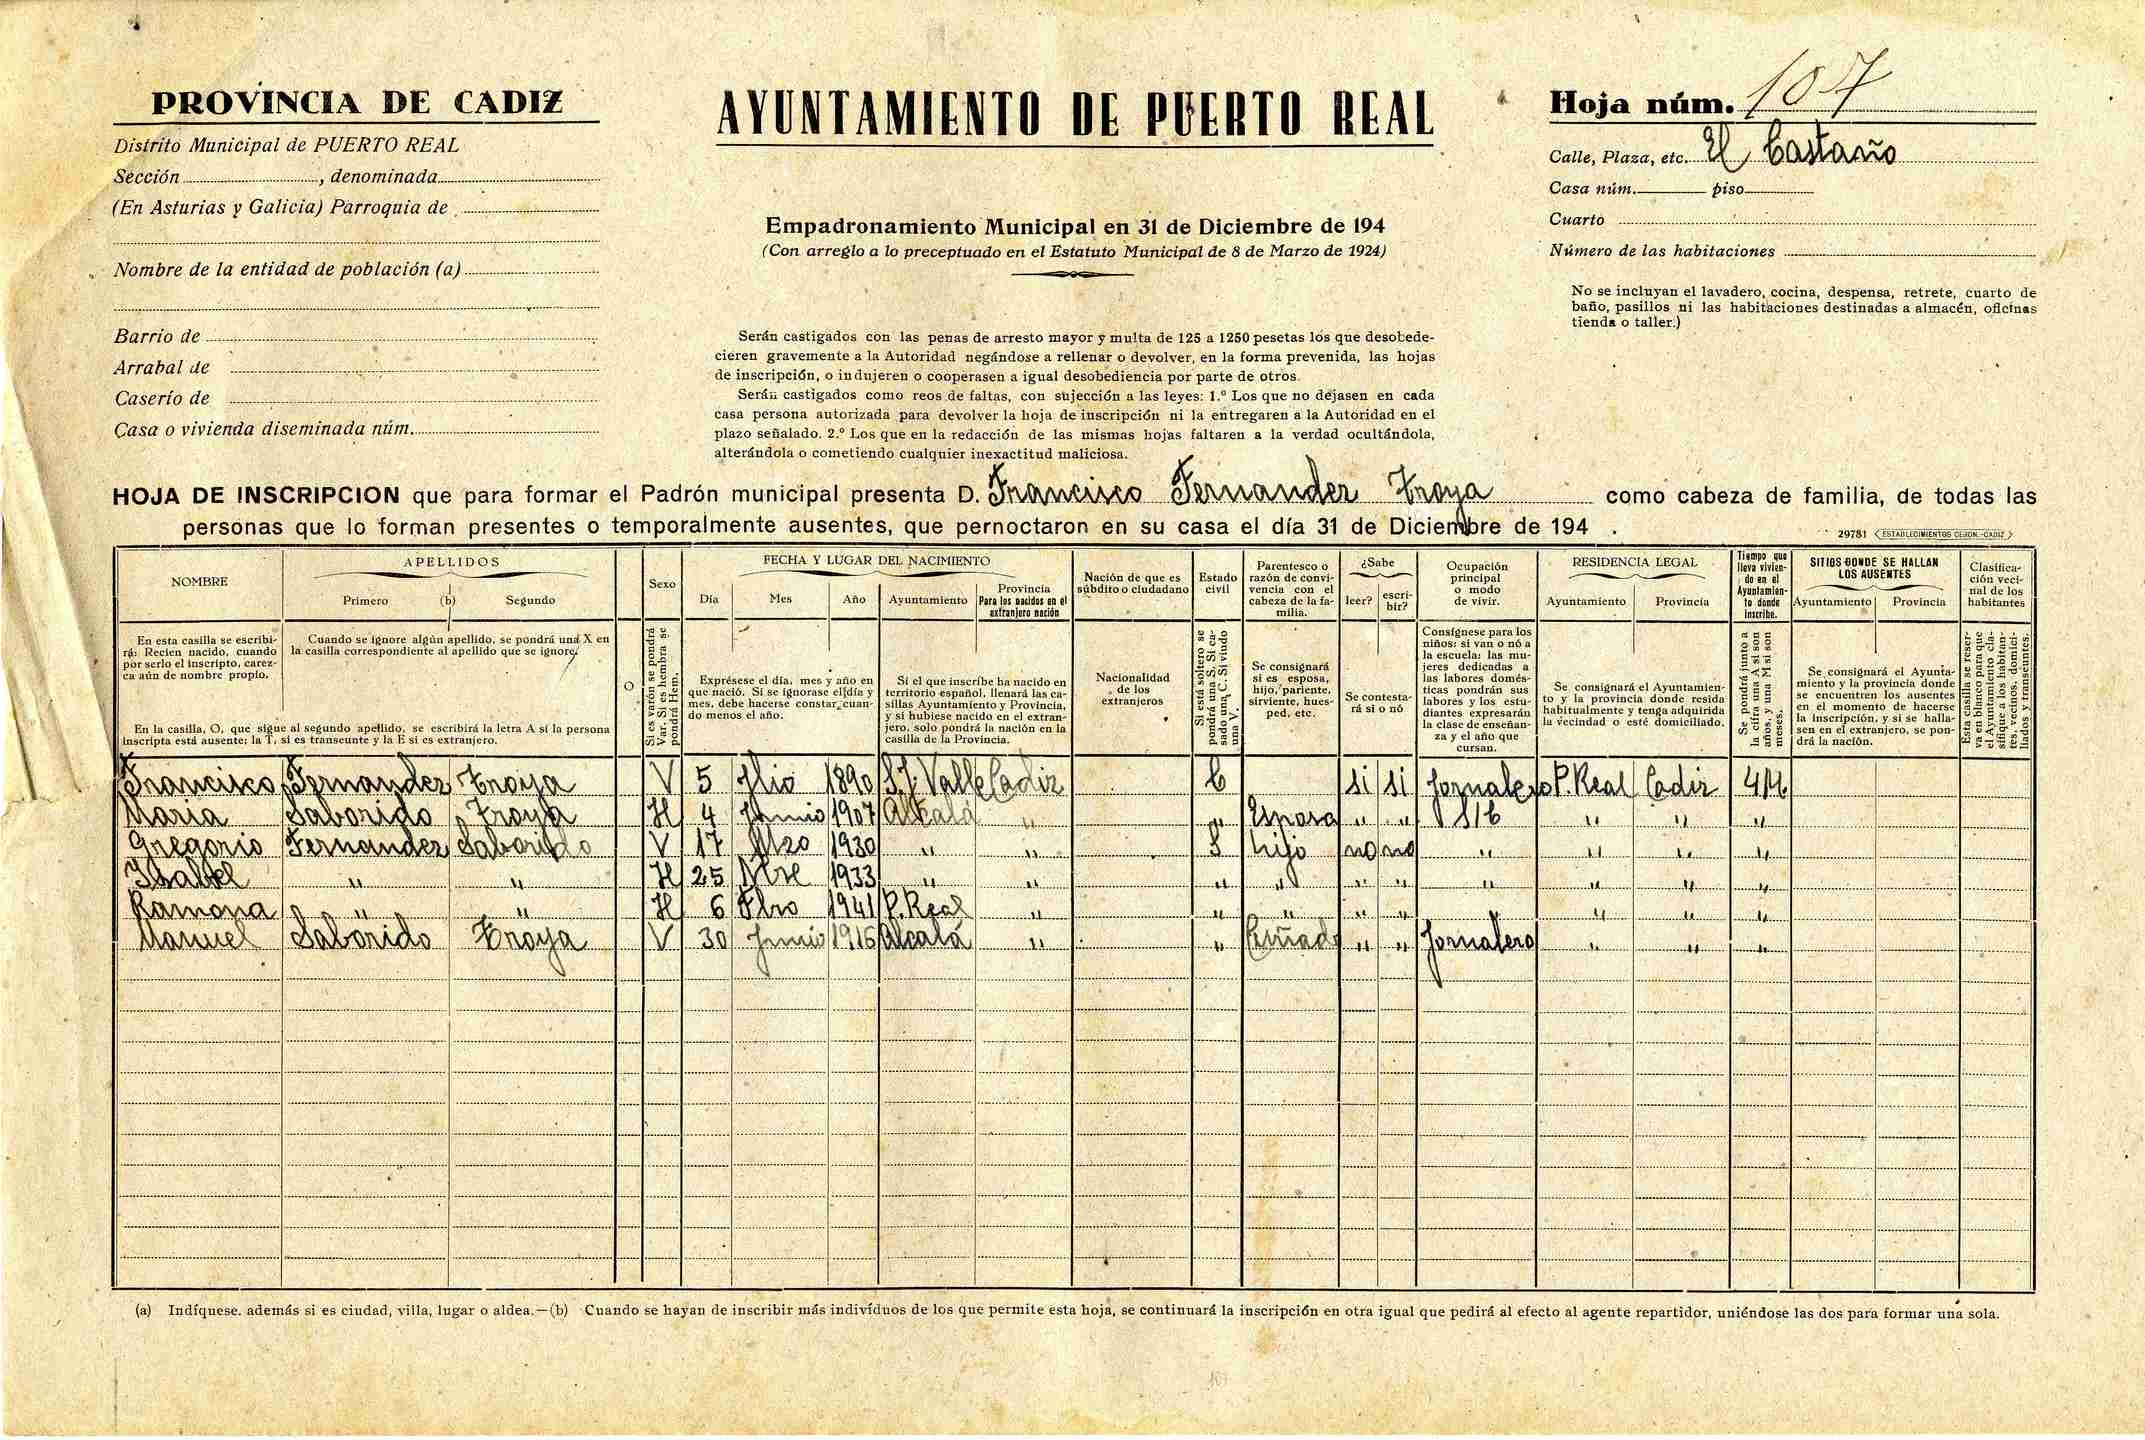 PROVINCIA DE CADIZ
Distrito Municipal de PUERTO REAL
Sección ............, denominada............
(En Asturias y Galicia) Parroquia de ............
Nombre de la entidad de población (a)............
Barrio de ............
Arrabal de ............
Caserío de ............
Casa o vivienda diseminada núm.............
AYUNTAMIENTO DE PUERTO REAL
Empadronamiento Municipal en 31 de Diciembre de 194
(Con arreglo a lo preceptuado en el Estatuto Municipal de 8 de Marzo de 1924)
Serán castigados con las penas de arresto mayor y multa de 125 a 1250 pesetas los que desobede-
cieren gravemente a la Autoridad negándose a rellenar o devolver, en la forma prevenida, las hojas
de inscripción, o indujeren o cooperasen a igual desobediencia por parte de otros.
Serán castigados como reos de faltas, con sujección a las leyes: 1.º Los que no dejasen en cada
casa persona autorizada para devolver la hoja de inscripción ni la entregaren a la Autoridad en el
plazo señalado. 2.º Los que en la redacción de las mismas hojas faltaren a la verdad ocultándola,
alterándola o cometiendo cualquier inexactitud maliciosa.
Hoja núm. 107
Calle, Plaza, etc. El Castaño
Casa núm. ............ piso............
Cuarto ............
Número de las habitaciones ............
No se incluyan el lavadero, cocina, despensa, retrete, cuarto de
baño, pasillos ni las habitaciones destinadas a almacén, oficinas
tienda o taller.)
HOJA DE INSCRIPCION que para formar el Padrón municipal presenta D. Francisco Fernandez Troya como cabeza de familia, de todas las
personas que lo forman presentes o temporalmente ausentes, que pernoctaron en su casa el día 31 de Diciembre de 194 .
29781 ESTABLECIMIENTOS CERON.-CADIZ
NOMBRE
APELLIDOS
Primero (b) Segundo
Sexo
FECHA Y LUGAR DEL NACIMIENTO
Día Mes Año Ayuntamiento Provincia
Para los nacidos en el
extranjero nación
Nación de que es
súbdito o ciudadano
Estado
civil
Parentesco o
razón de convi-
vencia con el
cabeza de la fa-
milia.
¿Sabe
leer? escri-
bir?
Ocupación
principal
o modo
de vivir.
RESIDENCIA LEGAL
Ayuntamiento Provincia
Tiempo que
lleva vivien-
do en el
Ayuntamien-
to donde
inscribe.
SITIOS DONDE SE HALLAN
LOS AUSENTES
Ayuntamiento Provincia
Clasifica-
ción veci-
nal de los
habitantes
En esta casilla se escribi-
rá: Recien nacido, cuando
por serlo el inscripto, carez-
ca aún de nombre propio.
Cuando se ignore algún apellido, se pondrá una X en
la casilla correspondiente al apellido que se ignore.
En la casilla, O, que sigue al segundo apellido, se escribirá la letra A si la persona
inscripta está ausente; la T, si es transeunte y la E si es extranjero.
O
Si es varón se pondrá
Var. Si es hembra se
pondrá Hem.
Exprésese el día, mes y año en
que nació. Si se ignorase el día y
mes, debe hacerse constar, cuan-
do menos el año.
Si el que inscribe ha nacido en
territorio español, llenará las ca-
sillas Ayuntamiento y Provincia,
y si hubiese nacido en el extran-
jero, solo pondrá la nación en la
casilla de la Provincia.
Nacionalidad
de los
extranjeros
Si está soltero se
pondrá una S. Si ca-
sado una C. Si viudo
una V.
Se consignará
si es esposa,
hijo, pariente,
sirviente, hues-
ped, etc.
Se contesta-
rá si o nó
Consígnese para los
niños: si van o nó a
la escuela; las mu-
jeres dedicadas a
las labores domés-
ticas pondrán sus
labores y los estu-
diantes expresarán
la clase de enseñan-
za y el año que
cursan.
Se consignará el Ayuntamien-
to y la provincia donde resida
habitualmente y tenga adquirida
la vecindad o esté domiciliado.
Se pondrá junto a
la cifra una A si son
años, y una M si son
meses.
Se consignará el Ayunta-
miento y la provincia donde
se encuentren los ausentes
en el momento de hacerse
la inscripción, y si se halla-
sen en el extranjero, se pon-
drá la nación.
Esta casilla se reser-
va en blanco para que
el Ayuntamiento cla-
sifique a los habitan-
tes, vecinos, domici-
liados y transeuntes.
Francisco Fernandez Troya V 5 Jlio 1890 S.J. Valle Cadiz C si si Jornalero P. Real Cadiz 4M
Maria Saborido Troya H 4 Junio 1907 Alcalá " " Esposa " " S/C " " "
Gregorio Fernandez Saborido V 17 Mzo 1930 " " S hijo no no " " " "
Isabel " " H 25 Nbre 1933 " " " " " " " " " "
Ramona " " H 6 Fbro 1941 P. Real " " " " " " " " "
Manuel Saborido Troya V 30 Junio 1916 Alcalá " " Cuñado " " Jornalero " " "
(a) Indíquese. además si es ciudad, villa, lugar o aldea.—(b) Cuando se hayan de inscribir más individuos de los que permite esta hoja, se continuará la inscripción en otra igual que pedirá al efecto al agente repartidor, uniéndose las dos para formar una sola.